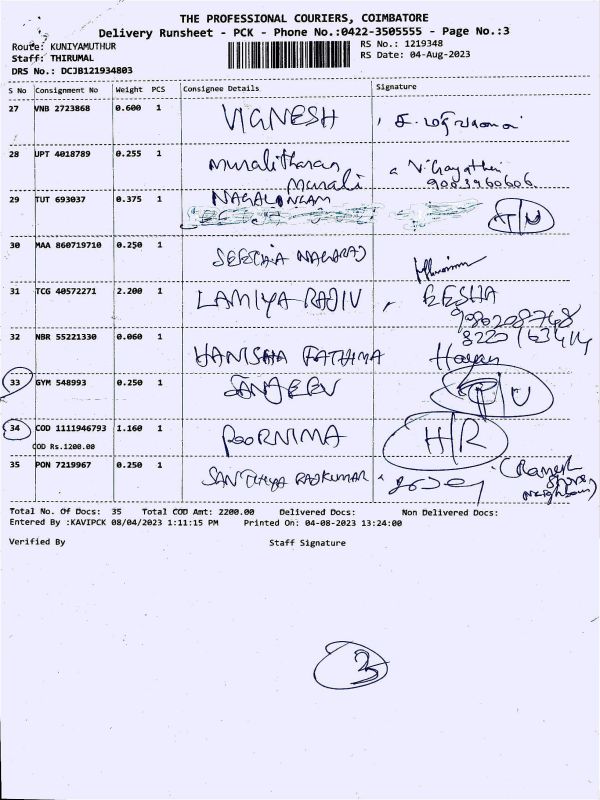 THE PROFESSIONAL COURIERS, COIMBATORE
Delivery Runsheet - PCK - Phone No.:0422-3505555 - Page No.:3
Route: KUNIYAMUTHUR
RS No.: 1219348
Staff: THIRUMAL
RS Date: 04-Aug-2023
DRS No.: DCJB121934803
S No Consignment No Weight PCS Consignee Details Signature
27 VNB 2723868 0.600 1 VIGNESH
28 UPT 4018789 0.255 1 Muralitharan
Murali
29 TUT 693037 0.375 1 NAGALINGAM
30 MAA 860719710 0.250 1
31 TCG 40572271 2.200 1 LAMIYA RAJIV , EESHA
32 NBR 55221330 0.060 1
FATHIMA
33 GYM 548993 0.250 1 SANJEEV
34 COD 1111946793 1.160 1 POORNIMA H/R
COD Rs.1200.00
35 PON 7219967 0.250 1 SANTHIYA RAJKUMAR
Total No. Of Docs: 35 Total COD Amt: 2200.00 Delivered Docs: Non Delivered Docs:
Entered By :KAVIPCK 08/04/2023 1:11:15 PM Printed On: 04-08-2023 13:24:00
Verified By Staff Signature
3